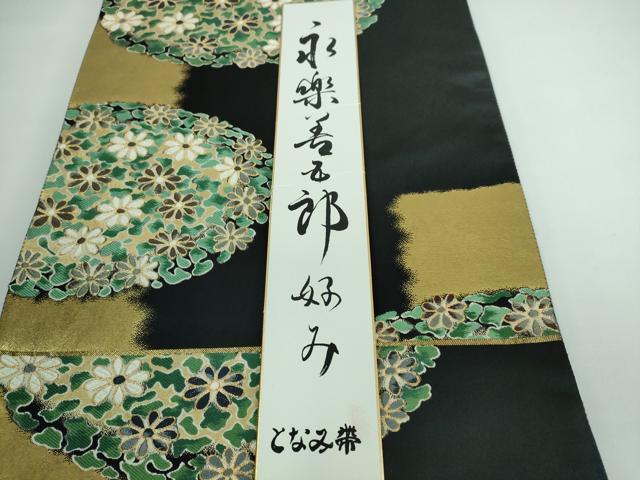 永樂善五郎好み
となみ帯